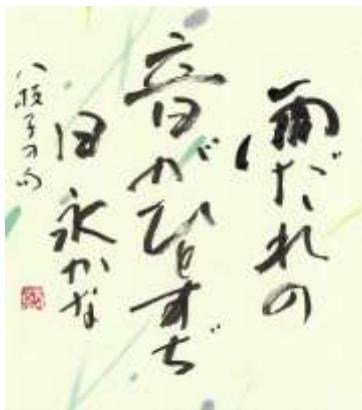 雨だれの
音がひとすぢ
日永かな
八枝子の句